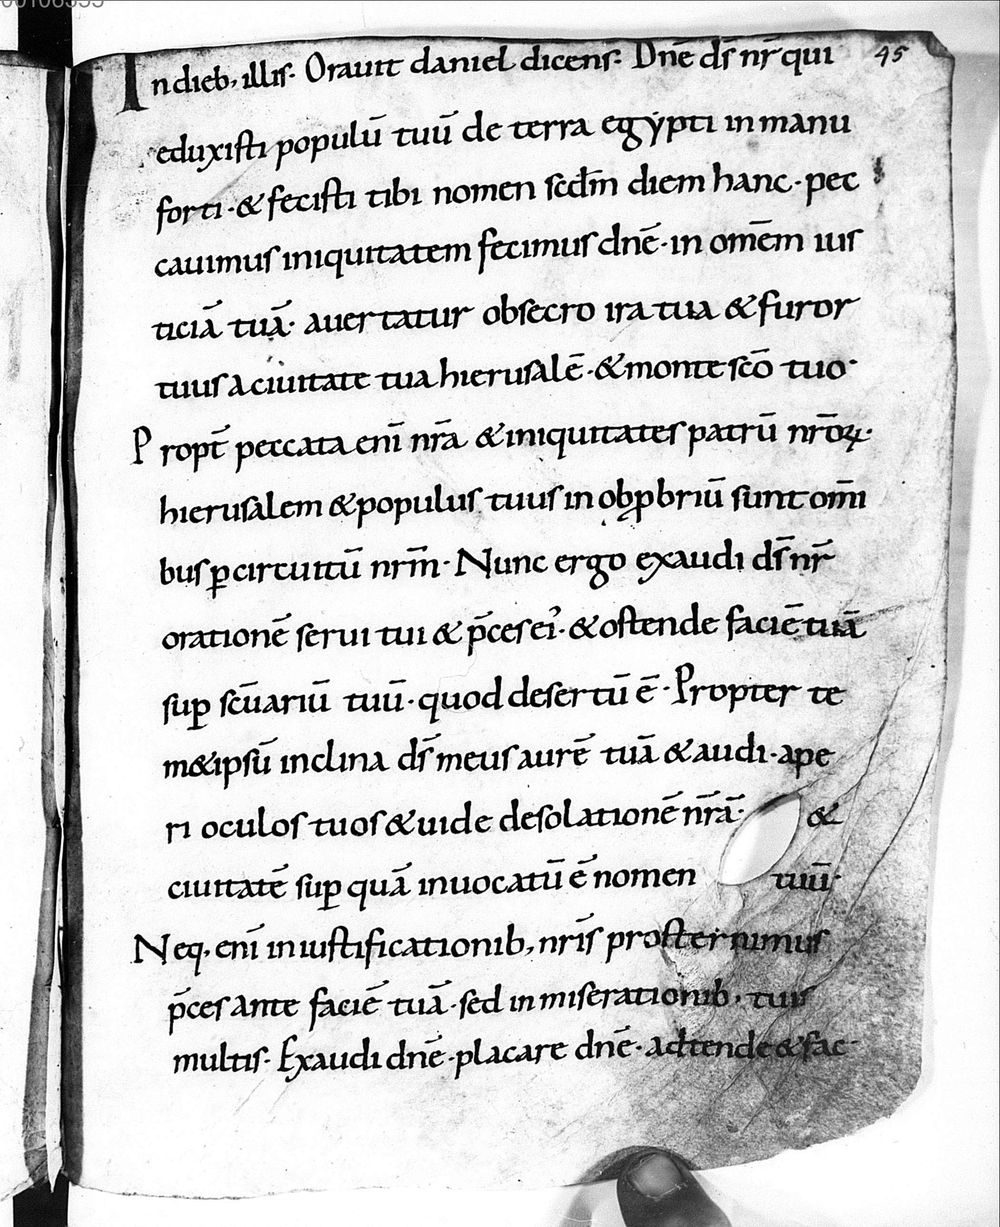 In dieb, illis· Orauit daniel dicens· Dnē ds̄ nr̄ qui 45
eduxisti populū tuū de terra egypti in manu
forti · & fecisti tibi nomen scdm̄ diem hanc · pec
cauimus iniquitatem fecimus dnē · in omēm ius
ticiā tuā· auertatur obsecro ira tua & furor
tuus a ciuitate tua hierusalē · & monte scō tuo·
Propt̄ peccata enī nr̄a & iniquitates patrū nr̄oꝝ·
hierusalem & populus tuus in obꝓbriū sunt om̄i
bus ꝑ circuitū nrm̄ · Nunc ergo exaudi ds̄ nr̄
orationē serui tui & p̄ces ei᾽ · & ostende faciē tuā
suꝑ sc̄uariū tuū · quod desertū ē · Propter te
m&ipsū inclina ds̄ meus aurē tuā & audi · ape
ri oculos tuos & uide desolationē nr̄ā· &
ciuitatē suꝑ quā inuocatū ē nomen tuū·
Neq, enī in iustificationib, nrīs prosternimus
p̄ces ante faciē tuā · sed in miserationib, tuis
multis· Exaudi dnē · placare dnē · adtende & fac·